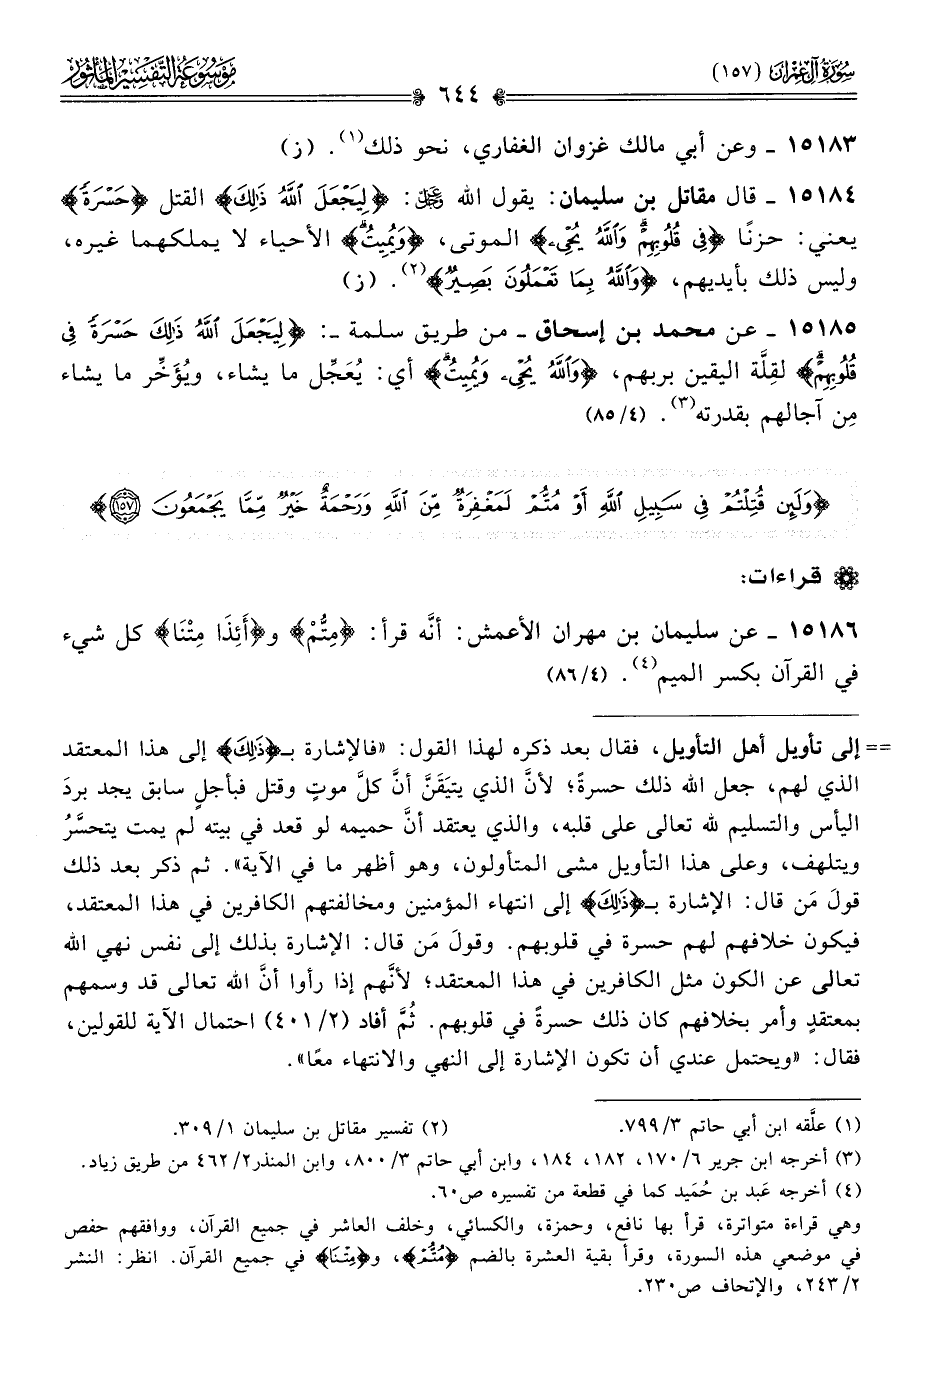 سُورَةُ آلِ عِمْرَانَ (١٥٧)
٦٤٤
مَوْسُوعَةُ التَّفْسِيرِ المَأْثُورِ
١٥١٨٣ ـ وعن أبي مالك غزوان الغفاري، نحو ذلك(١). (ز)
١٥١٨٤ ـ قال مقاتل بن سليمان: يقول الله ﷿: ﴿لِيَجْعَلَ ٱللَّهُ ذَٰلِكَ﴾ القتل ﴿حَسْرَةً﴾
يعني: حزنًا ﴿فِى قُلُوبِهِمْۗ وَٱللَّهُ يُحْىِۦ﴾ الموتى، ﴿وَيُمِيتُۗ﴾ الأحياء لا يملكهما غيره،
وليس ذلك بأيديهم، ﴿وَٱللَّهُ بِمَا تَعْمَلُونَ بَصِيرٌ﴾(٢). (ز)
١٥١٨٥ ـ عن محمد بن إسحاق ـ من طريق سلمة ـ: ﴿لِيَجْعَلَ ٱللَّهُ ذَٰلِكَ حَسْرَةً فِى
قُلُوبِهِمْۗ﴾ لقِلَّة اليقين بربهم، ﴿وَٱللَّهُ يُحْىِۦ وَيُمِيتُۗ﴾ أي: يُعَجِّل ما يشاء، ويُؤَخِّر ما يشاء
مِن آجالهم بقدرته(٣). (٤/ ٨٥)
﴿وَلَئِن قُتِلْتُمْ فِى سَبِيلِ ٱللَّهِ أَوْ مُتُّمْ لَمَغْفِرَةٌ مِّنَ ٱللَّهِ وَرَحْمَةٌ خَيْرٌ مِّمَّا يَجْمَعُونَ ١٥٧﴾
قراءات:
١٥١٨٦ ـ عن سليمان بن مهران الأعمش: أنَّه قرأ: ﴿مِتُّمْ﴾ و﴿أَئِذَا مِتْنَا﴾ كل شيء
في القرآن بكسر الميم(٤). (٤/ ٨٦)
== إلى تأويل أهل التأويل، فقال بعد ذكره لهذا القول: «فالإشارة بـ﴿ذَٰلِكَ﴾ إلى هذا المعتقد
الذي لهم، جعل الله ذلك حسرةً؛ لأنَّ الذي يتيَقَنَّ أنَّ كلَّ موتٍ وقتل فبأجلٍ سابق يجد بردَ
اليأس والتسليم لله تعالى على قلبه، والذي يعتقد أنَّ حميمه لو قعد في بيته لم يمت يتحسَّرُ
ويتلهف، وعلى هذا التأويل مشى المتأولون، وهو أظهر ما في الآية». ثم ذكر بعد ذلك
قولَ مَن قال: الإشارة بـ﴿ذَٰلِكَ﴾ إلى انتهاء المؤمنين ومخالفتهم الكافرين في هذا المعتقد،
فيكون خلافهم لهم حسرة في قلوبهم. وقولَ مَن قال: الإشارة بذلك إلى نفس نهي الله
تعالى عن الكون مثل الكافرين في هذا المعتقد؛ لأنَّهم إذا رأوا أنَّ الله تعالى قد وسمهم
بمعتقدٍ وأمر بخلافهم كان ذلك حسرةً في قلوبهم. ثُمَّ أفاد (٢/ ٤٠١) احتمال الآية للقولين،
فقال: «ويحتمل عندي أن تكون الإشارة إلى النهي والانتهاء معًا».
(١) علَّقه ابن أبي حاتم ٣/ ٧٩٩. (٢) تفسير مقاتل بن سليمان ١/ ٣٠٩.
(٣) أخرجه ابن جرير ٦/ ١٧٠، ١٨٢، ١٨٤، وابن أبي حاتم ٣/ ٨٠٠، وابن المنذر٢/ ٤٦٢ من طريق زياد.
(٤) أخرجه عَبد بن حُمَيد كما في قطعة من تفسيره ص٦٠.
وهي قراءة متواترة، قرأ بها نافع، وحمزة، والكسائي، وخلف العاشر في جميع القرآن، ووافقهم حفص
في موضعي هذه السورة، وقرأ بقية العشرة بالضم ﴿مُتُّمْ﴾، و﴿مُتْنَا﴾ في جميع القرآن. انظر: النشر
٢/ ٢٤٣، والإتحاف ص٢٣٠.